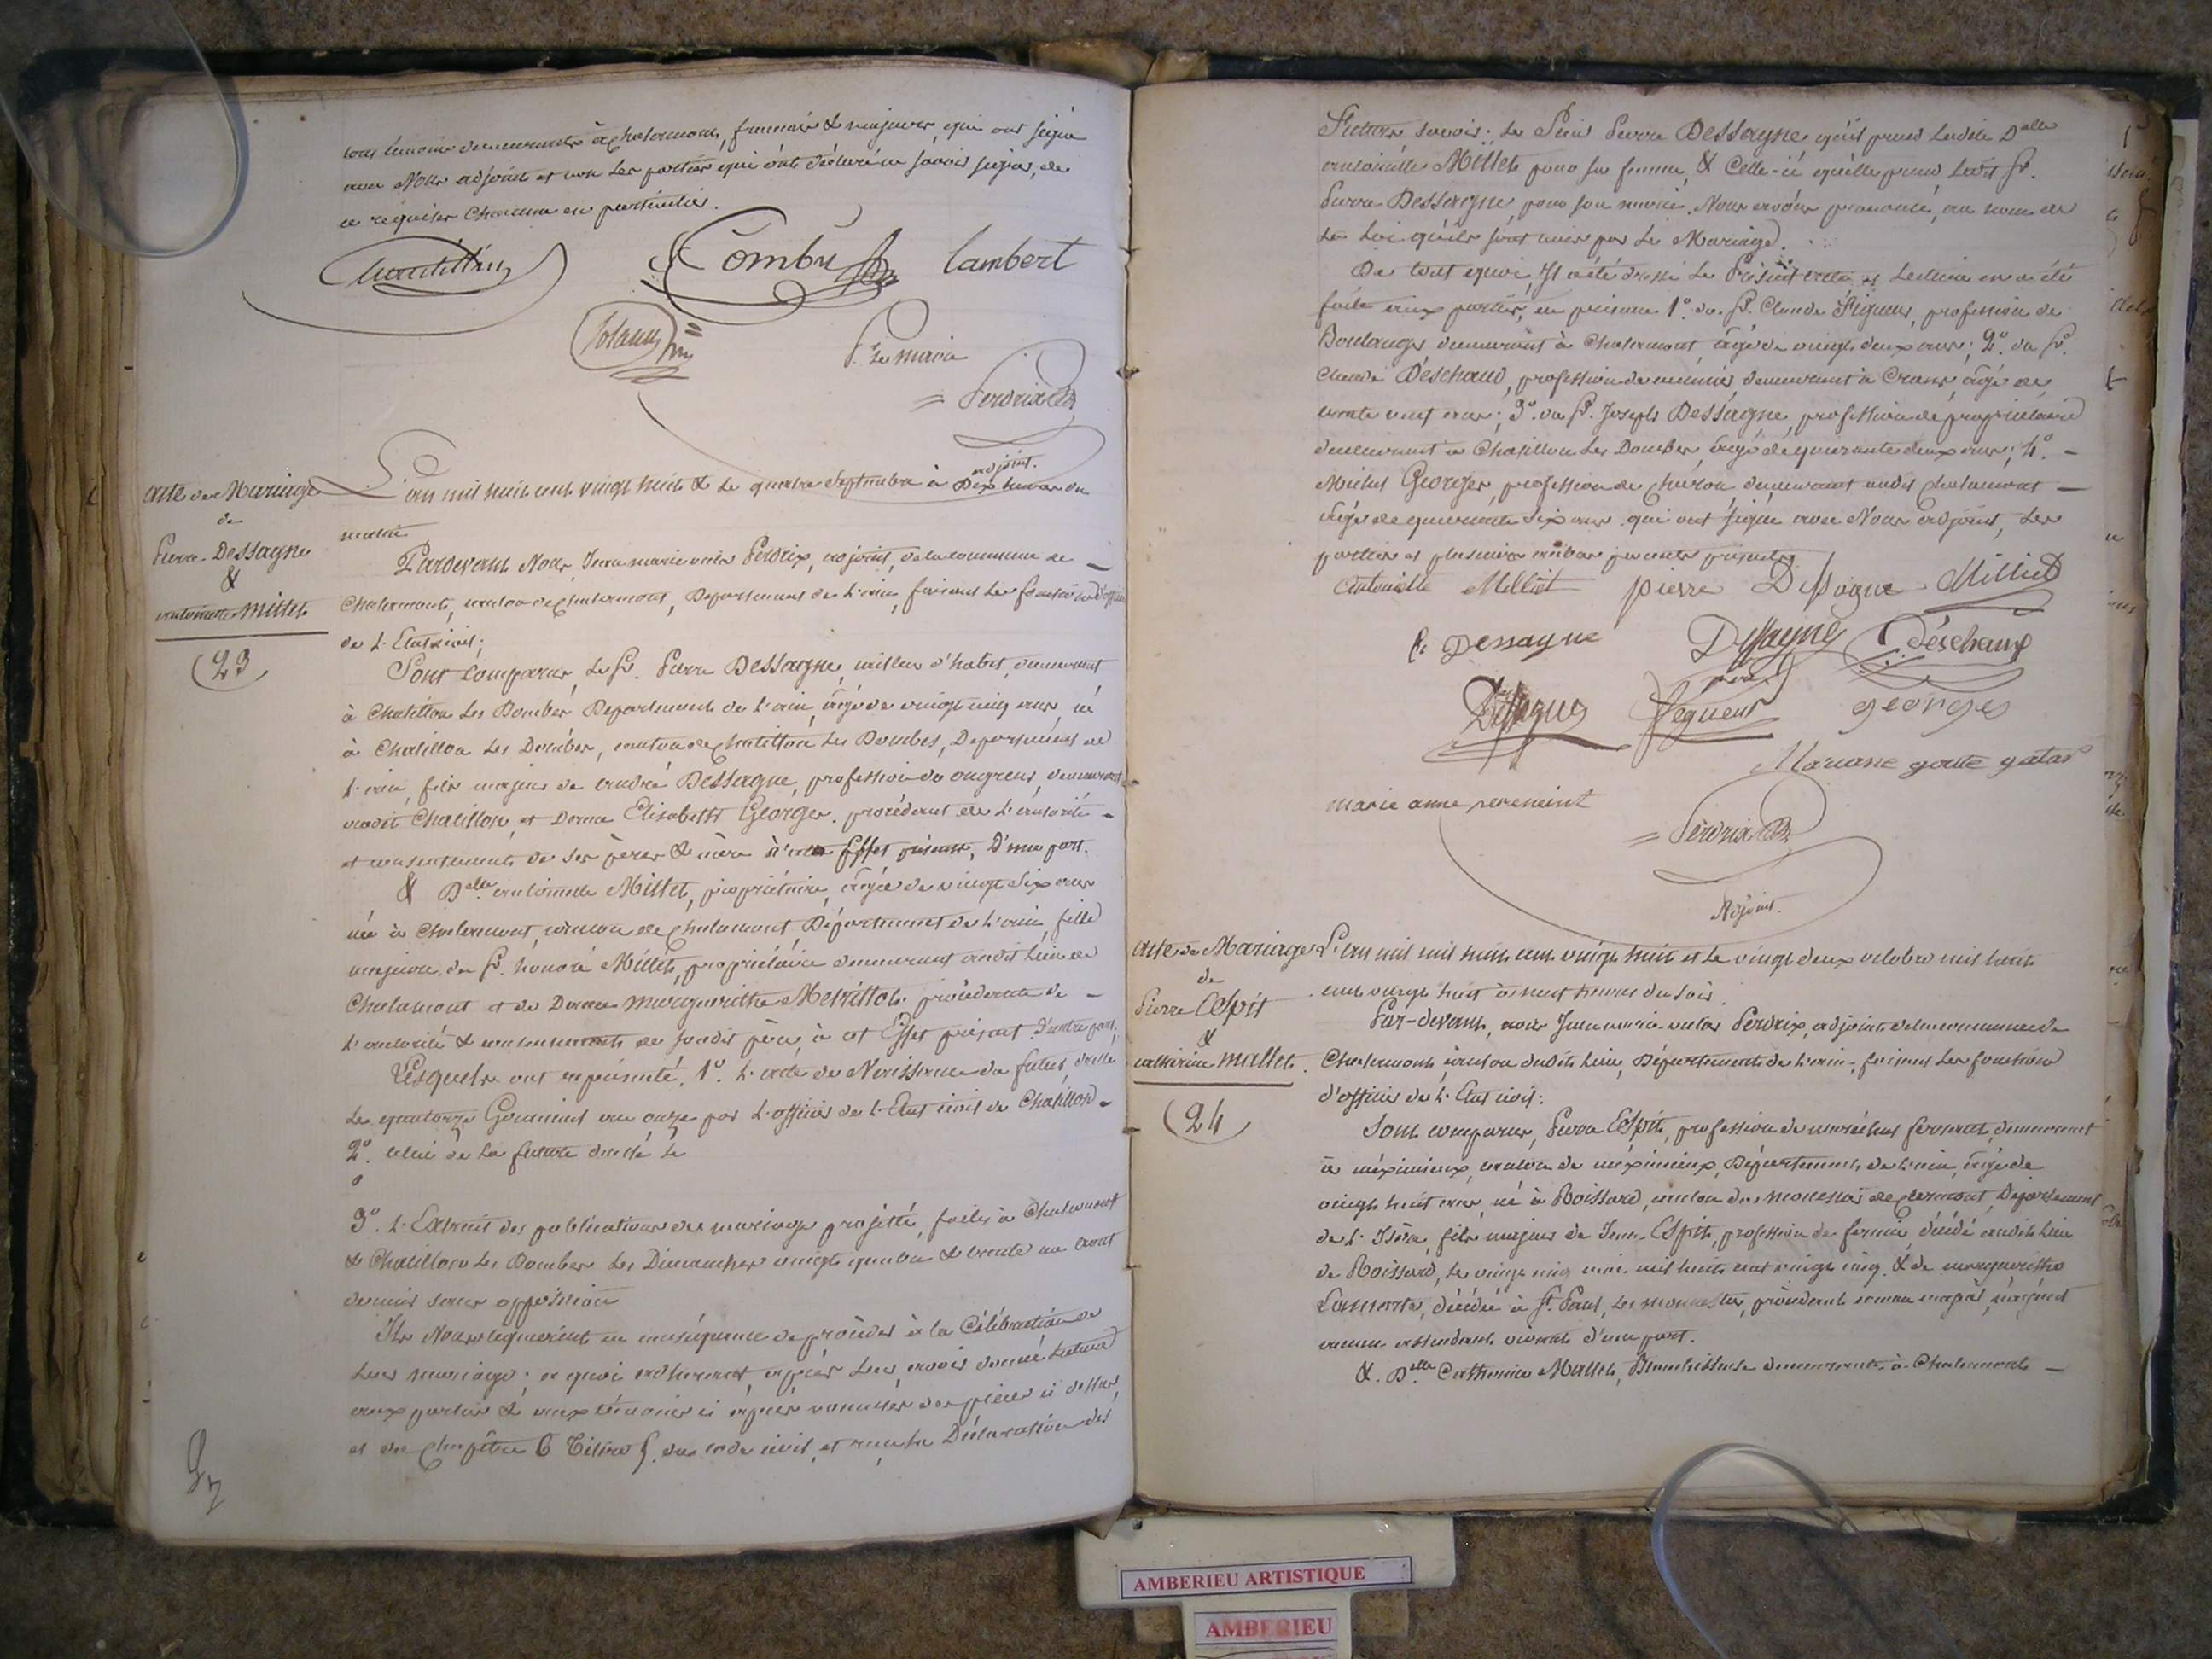 tous témoins demeurants à Chalamont, français & majeurs, qui ont signé
avec Nous adjoint et non les parties qui ont déclaré ne savoir signer, de
ce requises chacune en particulier.
Combet lambert
P. le maire
= Perdrix
adjoint.
acte de Mariage
de
Pierre Dessagne
&
antoinette Millet
23
L'an mil huit cent vingt huit & le quatre Septembre à Dix heures du
matin
Pardevant Nous, Jean marie Perdrix, adjoint, de la commune de
Chalamont, canton de Chalamont, Département de l'ain, faisant les fonctions d'officier
de l'Etat civil;
Sont comparus, le Sr. Pierre Dessagne, tailleur d'habits, demeurant
à Chatillon les Dombes Département de l'ain, âgé de vingt cinq ans, né
à Chatillon les Dombes, canton de Chatillon les Dombes, Département de
l'ain, fils majeur de andré Dessagne, profession de, demeurant
audit Chatillon, et Dame Elisabeth Georges. procédant de l'autorité
et consentement de ses père & mère à cet Effet présents, D'une part.
& Delle antoinette Millet, propriétaire, âgée de vingt six ans
née à Chalamont, canton de Chalamont, Département de l'ain, fille
majeure de Sr. honoré Millet, propriétaire demeurant audit lieu de
Chalamont et de Dame Marguerithe procédante de
l'autorité & consentement de sondit père, à cet Effet présent D'autre part.
Lesquels ont représenté, 1º. l'acte de Naissance du futur, dressé
le quatorze Germinal an onze par l'officier de l'Etat civil de Chatillon
2º. celui de la future dressé le
3º. l'Extrait des publications de mariage projetté, faites à Chalamont
& Chatillon les Dombes les Dimanches vingt quatre & trente un août
dernier sans opposition
Ils Nous requierent en conséquence de procéder à la Célébration de
leur mariage; a quoi adhérant, après leur avoir donné lecture
aux parties & aux témoins ci après nommés des pièces ci dessus,
et du Chapitre 6 Titre 5. du code civil, et reçu la Déclaration des
futurs savoir: le Sieur Pierre Dessagne qu'il prend ladite Delle
antoinette Millet pour sa femme, & Celle-ci qu'elle prend ledit Sr.
Pierre Dessagne pour son mari. Nous avons prononcé, au nom de
la loi qu'ils sont unis par le Mariage.
De tout quoi, Il a été dressé le Présent acte et lecture en a été
faite aux parties, en présence 1º. du Sr. Claude, profession de
Boulanger demeurant à Chalamont, âgé de vingt deux ans; 2º. du Sr.
Claude Deschamp, profession de meunier, demeurant à Crans, âgé de
trente neuf ans; 3º. du Sr. Joseph Dessagne, profession de propriétaire
demeurant à Chatillon les Dombes, âgé de quarante deux ans; 4º.
Michel Georges, profession de Charon, demeurant audit Chalamont
âgé de quarante six ans. qui ont signé avec Nous adjoint, les
parties et plusieurs autres parents présents.
Antoinette Milliet pierre Dessagne Milliet
Dessagne Dessagne père Déschamp
Dessagne georges
Mariane
marie anne
= Perdrix
Adjoint.
acte de Mariage
de
Pierre Espit
&
catherine Mallet.
24
L'an mil mil huit cent vingt huit et le vingt deux octobre mil huit
cent vingt huit à neuf heures du soir.
Par-devant, nous Jean marie Perdrix, adjoint de la commune de
Chalamont, canton dudit lieu, Département de l'ain, faisant les fonctions
d'officier de l'Etat civil:
Sont comparus, Pierre Espit, profession de maréchal ferrant, demeurant
à méximieux, canton de méximieux, Département de l'ain, âgé de
vingt huit ans, né à Roissard, canton du Monestier de Clermont, Département
de l'Isère, fils majeur de Jean Espit, profession de fermier, décédé audit lieu
de Roissard, le vingt cinq mai mil huit cent vingt cinq. & de marguerithe
décédée à St. Paul, les monestier, procédant comme majeur, n'ayant
aucun ascendant vivant d'une part.
&. Delle Catherine Mallet, Blanchisseuse demeurante à Chalamont
AMBERIEU ARTISTIQUE
AMBERIEU